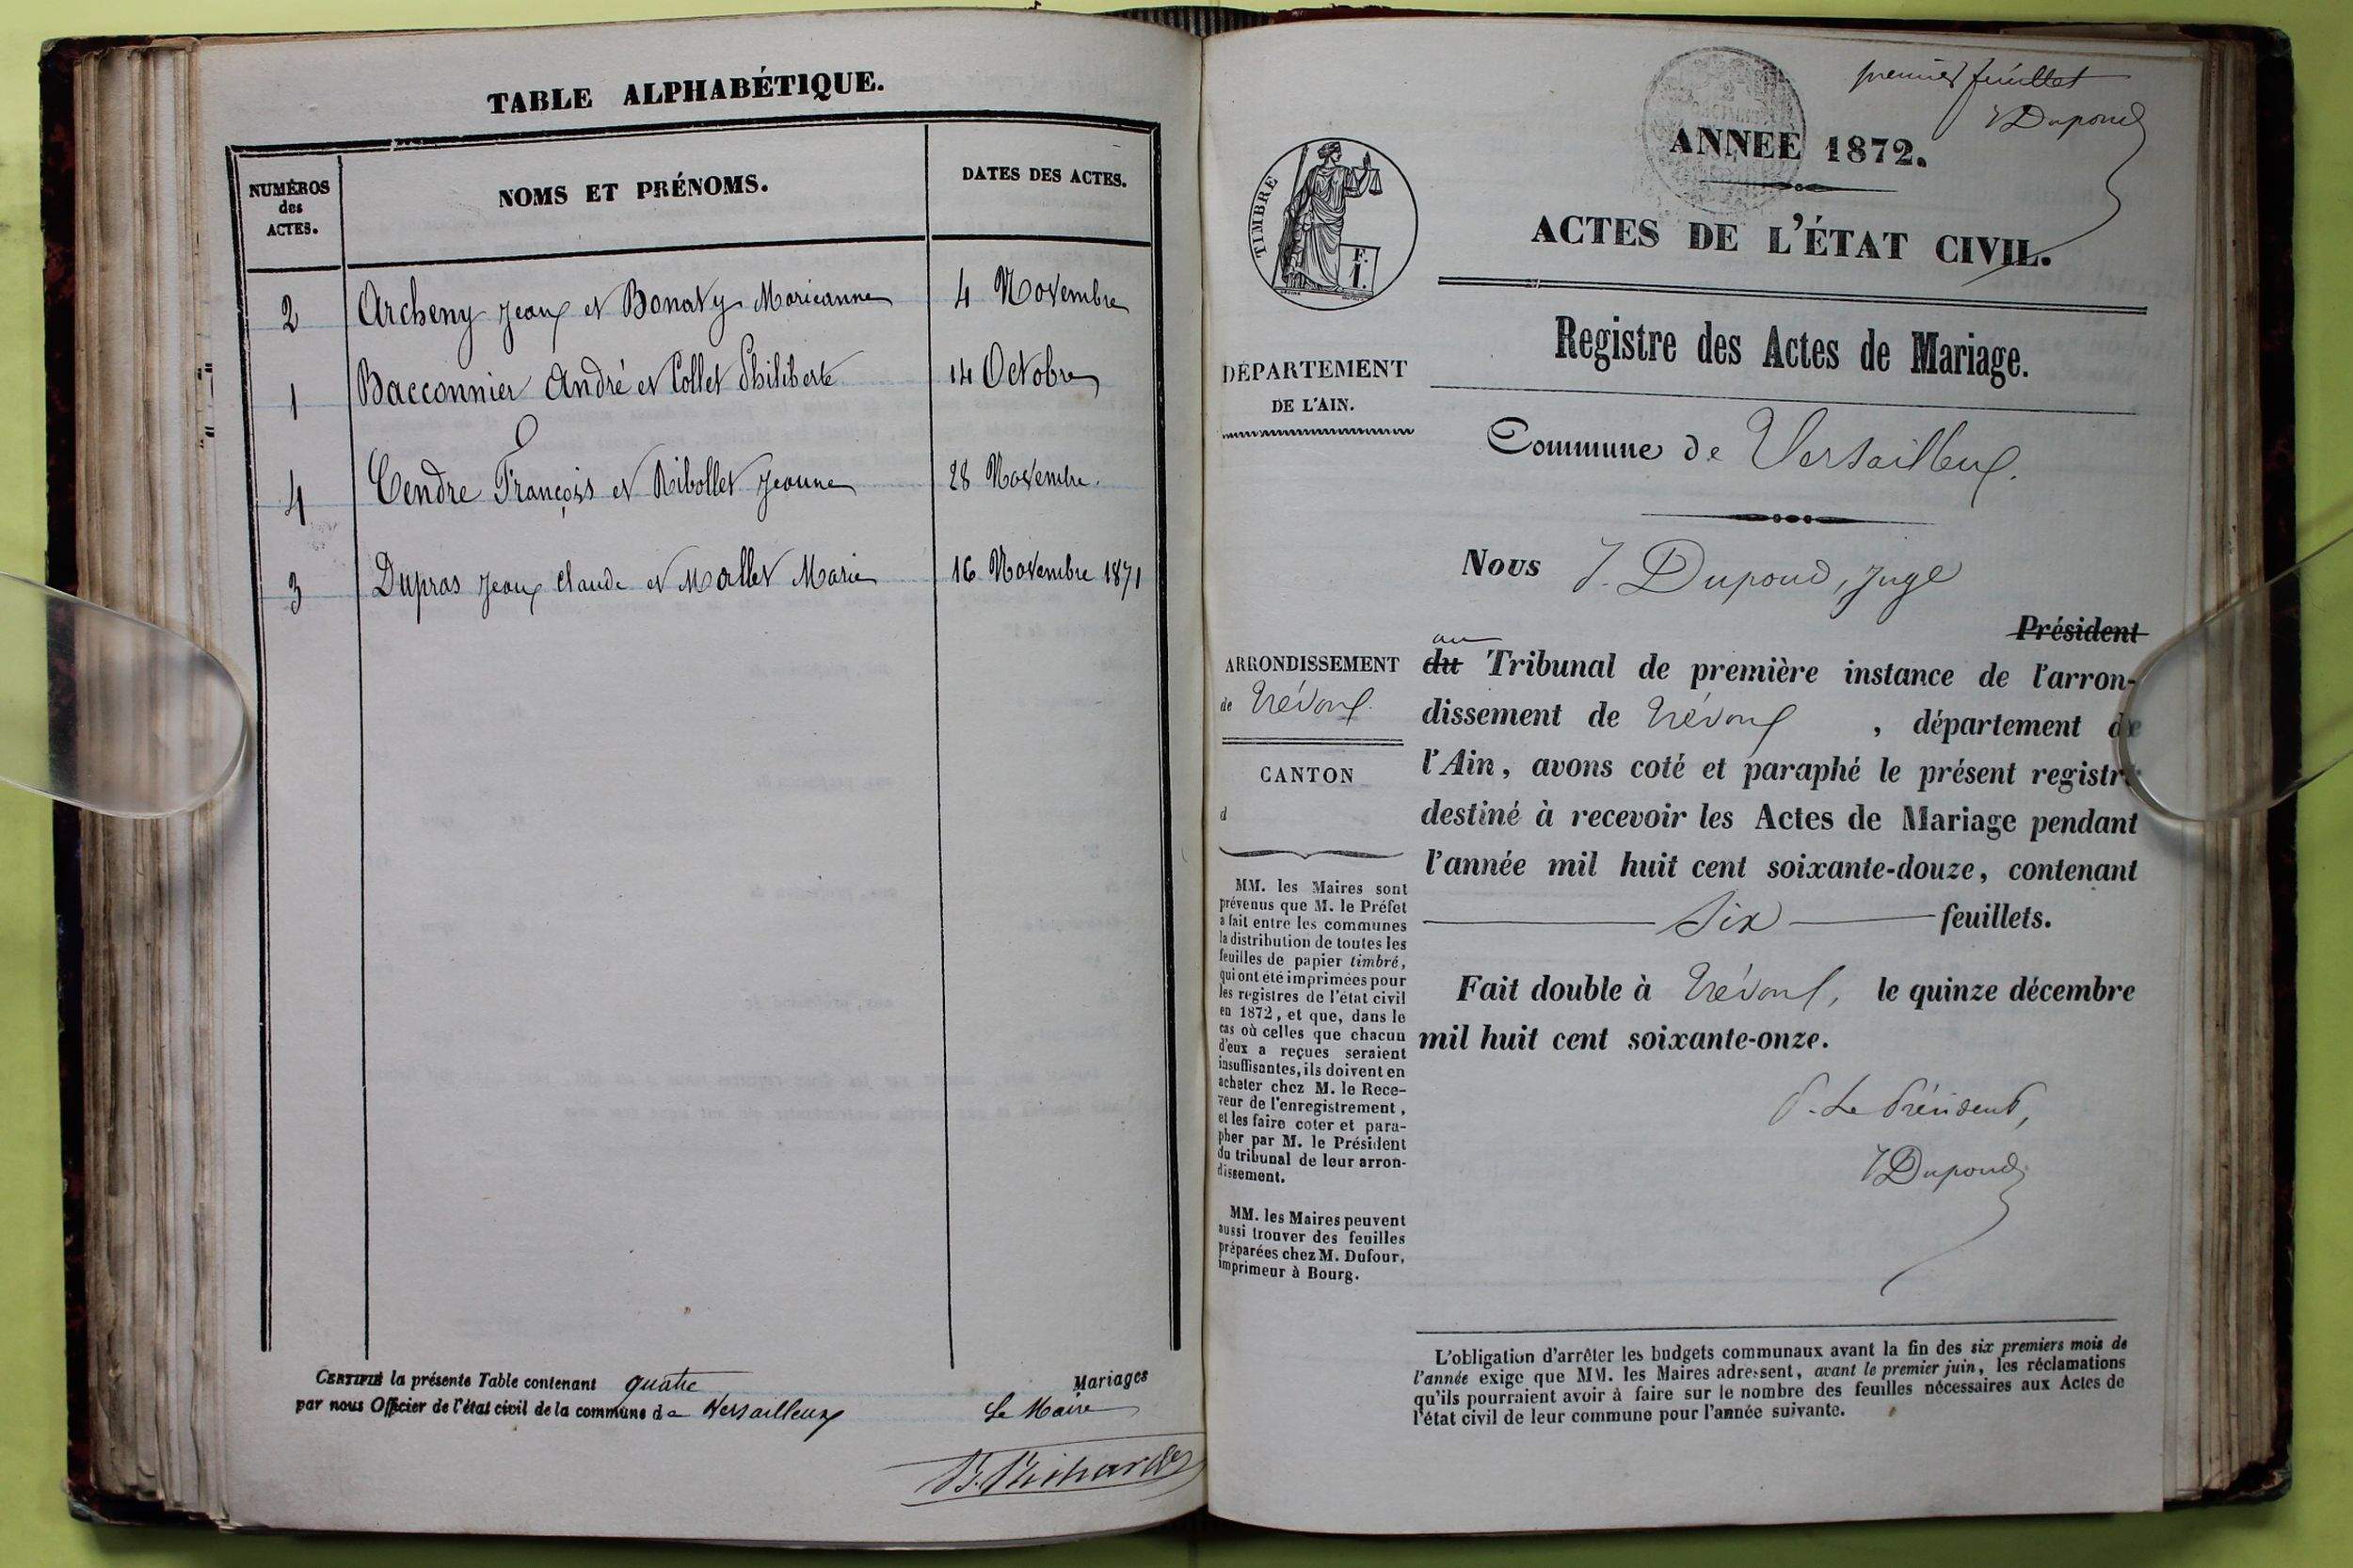 TABLE ALPHABÉTIQUE.
NUMÉROS
des
ACTES.
NOMS ET PRÉNOMS.
DATES DES ACTES.
2 Archeny Jean et Bonaty Marieanne 4 Novembre
1 Bacconnier André et Collet Philiberte 14 Octobre
4 Cendre François et Ribollet Jeanne 28 Novembre.
3 Dupras Jean Claude et Mallet Marie 16 Novembre 1871
CERTIFIÉ la présente Table contenant quatre Mariages
par nous Officier de l'état civil de la commune de Versailleux Le Maire
premier feuillet
J Dupond
ANNEE 1872.
ACTES DE L'ÉTAT CIVIL.
TIMBRE
F.
1.
Registre des Actes de Mariage.
DÉPARTEMENT
DE L'AIN.
Commune de Versailleux.
Nous J. Dupond, juge
Président
au
ARRONDISSEMENT
de Trévoux.
CANTON
d
MM. les Maires sont
prévenus que M. le Préfet
a fait entre les communes
la distribution de toutes les
feuilles de papier timbré,
qui ont été imprimées pour
les registres de l'état civil
en 1872, et que, dans le
cas où celles que chacun
d'eux a reçues seraient
insuffisantes, ils doivent en
acheter chez M. le Rece-
veur de l'enregistrement,
et les faire coter et para-
pher par M. le Président
du tribunal de leur arron-
dissement.
MM. les Maires peuvent
aussi trouver des feuilles
préparées chez M. Dufour,
imprimeur à Bourg.
du Tribunal de première instance de l'arron-
dissement de Trévoux, département de
l'Ain, avons coté et paraphé le présent registre
destiné à recevoir les Actes de Mariage pendant
l'année mil huit cent soixante-douze, contenant
six feuillets.
Fait double à Trévoux, le quinze décembre
mil huit cent soixante-onze.
P. Le Président,
J Dupond
L'obligation d'arrêter les budgets communaux avant la fin des six premiers mois de
l'année exige que MM. les Maires adressent, avant le premier juin, les réclamations
qu'ils pourraient avoir à faire sur le nombre des feuilles nécessaires aux Actes de
l'état civil de leur commune pour l'année suivante.